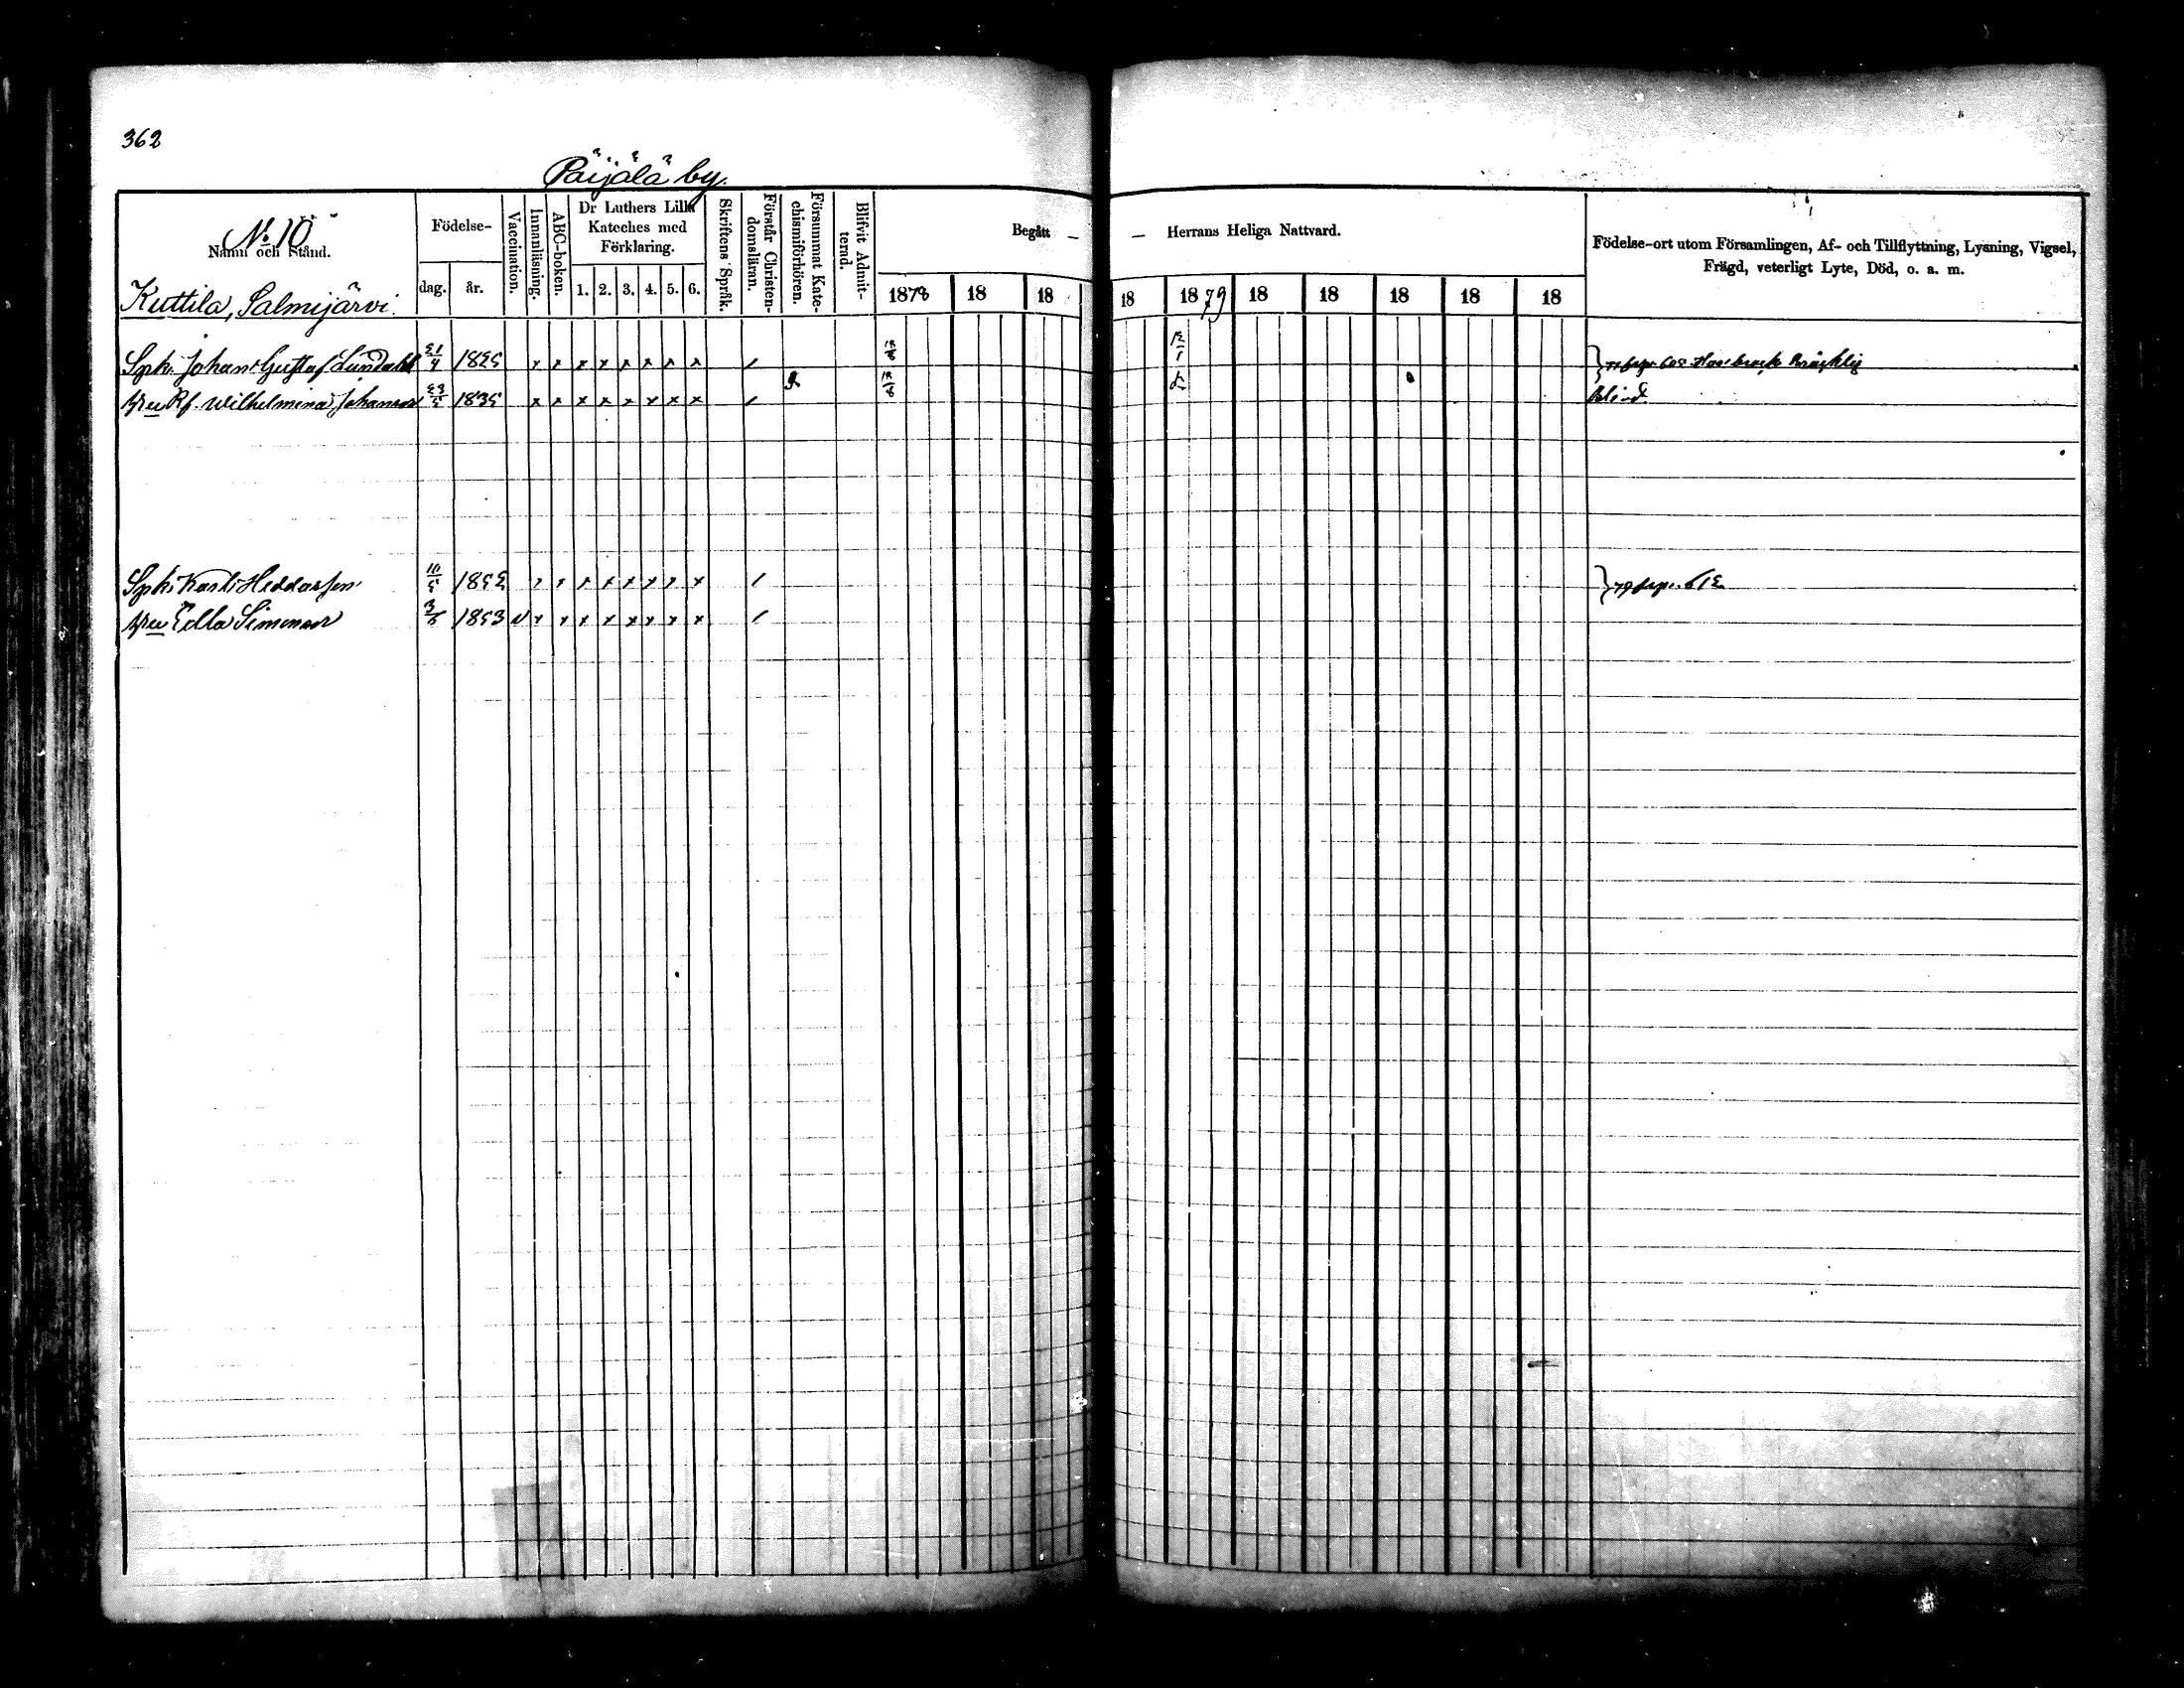 362
Päijälä by.
No 10
Namn och Stånd.
Kuttila, Salmijärvi.
Födelse-
dag. år.
Vaccination.
Innanläsning.
ABC-boken.
Dr Luthers Lilla
Kateches med
Förklaring.
1. 2. 3. 4. 5. 6.
Skriftens Språk.
Förstår Christen-
domsläran.
Försummat Kate-
chismiförhören.
Blifvit Admit-
terad.
Begått — — Herrans Heliga Nattvard.
1878 18 18 18 1879 18 18 18 18 18
Födelse-ort utom Församlingen, Af- och Tillflyttning, Lysning, Vigsel,
Frägd, veterligt Lyte, Död, o. a. m.
Spk. Johan Gustaf Lundahl 21/4 1825 x x x x x x x x / bräcklig
Hru Rf. Wilhelmina Johansdr 1835 x x x x x x x x / Blind
Spk. Karl Heddasson 1852 x x x x x x x x /
Hru Edla Simonsdr 1853 v x x x x x x x x /